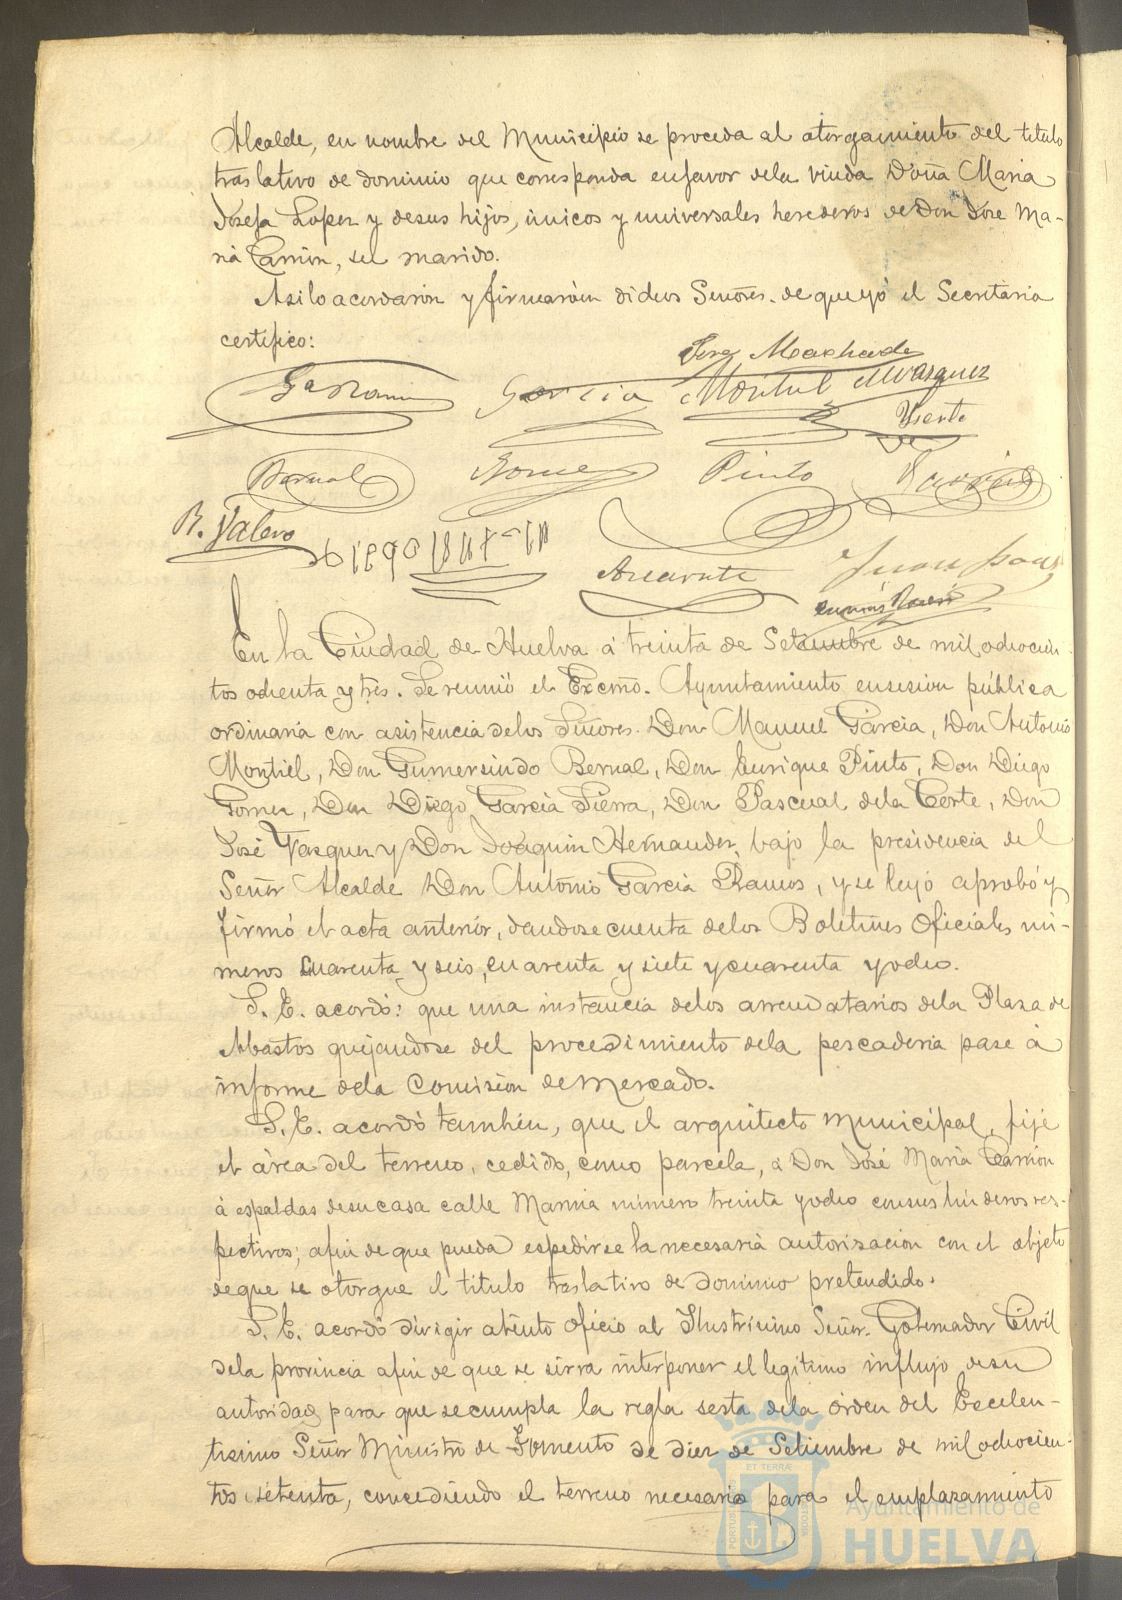 Alcalde, en nombre del Municipio se proceda al otorgamiento del titulo
traslativo de dominio que corresponda enfavor dela viuda Doña Maria
Josefa Lopez y desus hijos, únicos y universales herederos de Don José Ma-
ria Carrion, su marido.
Asilo acordarón y firmarón dichos Señores. de que yó el Secretario
certifico:
Jorge Machado
Garcia Montiel Vazquez
Bernal Gomez Pinto
R. Valero
En la Ciudad de Huelva á treinta de Setiembre de mil ochocien-
tos ochenta y tres. Se reunió el Excmo. Ayuntamiento ensesion pública
ordinaria con asistencia delos Señores. Don Manuel Garcia, Don Antonio
Montiel, Don Gumersindo Bernal, Don Enrique Pinto, Don Diego
Gomez, Don Diego Garcia Sierra, Don Pascual dela Corte, Don
José Vasquez y Don Joaquin Hernandez, bajo la presidencia del
Señor Alcalde Don Antonio Garcia Ramos, y se leyó aprobó y
firmó el acta anterior, dandose cuenta delos Boletines Oficiales nú-
meros cuarenta y seis, cuarenta y siete y cuarenta y ocho.
S. E. acordó: que una instancia delos arrendatarios dela Plaza de
Abastos quejandose del procedimiento dela pescaderia pase á
informe dela Comision de Mercado.
S. E. acordó tambien, que el arquitecto municipal, fije
el área del terreno, cedido, como parcela, á Don José Maria Carrion
á espaldas desu casa calle Marina número treinta y ocho consus linderos res-
pectivos; afin de que pueda espedirse la necesaria autorizacion con el objeto
deque se otorgue el titulo traslativo de dominio pretendido.
S. E. acordó dirigir atento oficio al Ilustrisimo Señor Gobernador Civil
dela provincia afin de que se sirva interponer el legitimo influjo desu
autoridad para que secumpla la regla sesta dela órden del Escelen-
tisimo Señor Ministro de Fomento de diez de Setiembre de mil ochocien-
tos setenta, concediendo el terreno necesario para el emplazamiento
ET TERRÆ
PORTUS
CUSTODIA
Ayuntamiento de
HUELVA